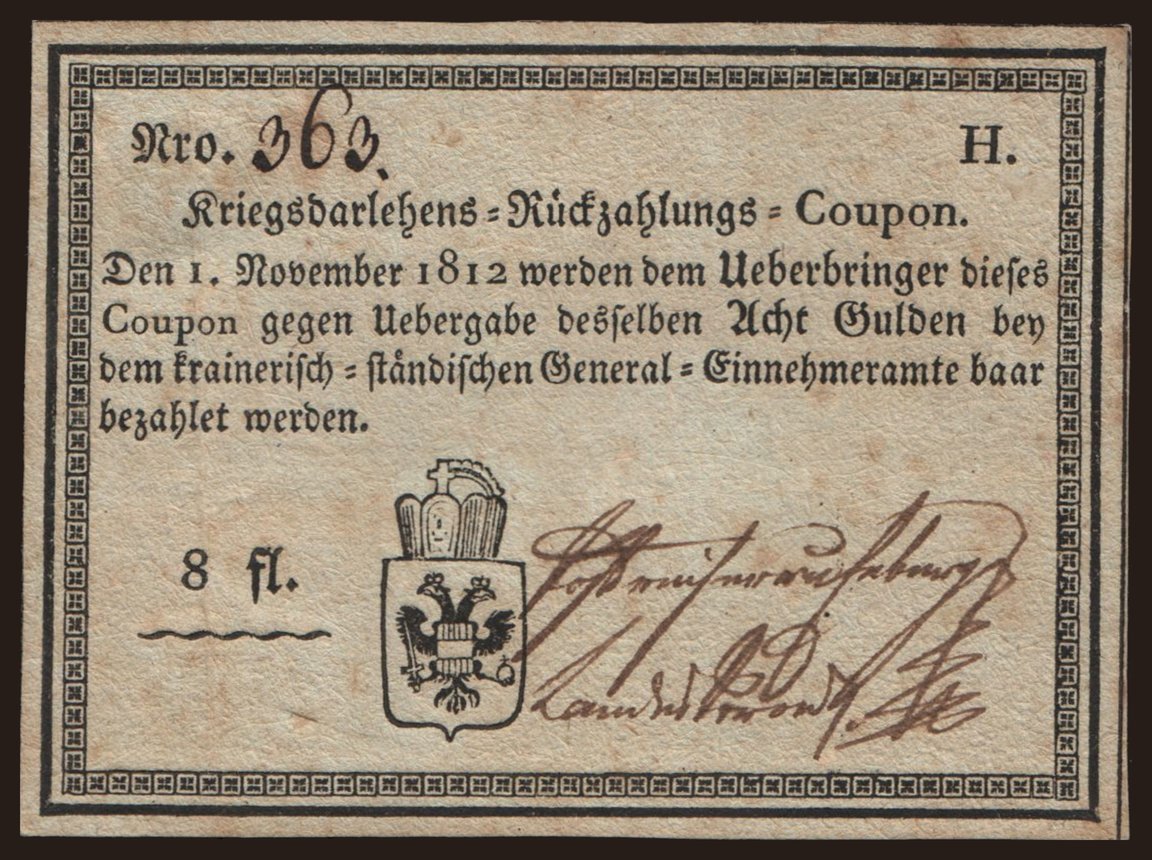 Nro. 363. H.
Kriegsdarlehens-Rückzahlungs-Coupon.
Den 1. November 1812 werden dem Ueberbringer dieses
Coupon gegen Uebergabe desselben Acht Gulden bey
dem krainerisch-ständischen General-Einnehmeramte baar
bezahlet werden.
8 fl.